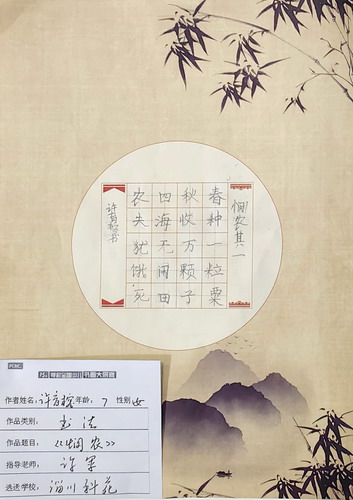 悯农其一
春种一粒粟
秋收万颗子
四海无闲田
农夫犹饿死
作者姓名：许育 年龄：7 性别 女
作品类别：书法
作品题目：《悯农》
指导老师：许军
选送学校：淄川科苑